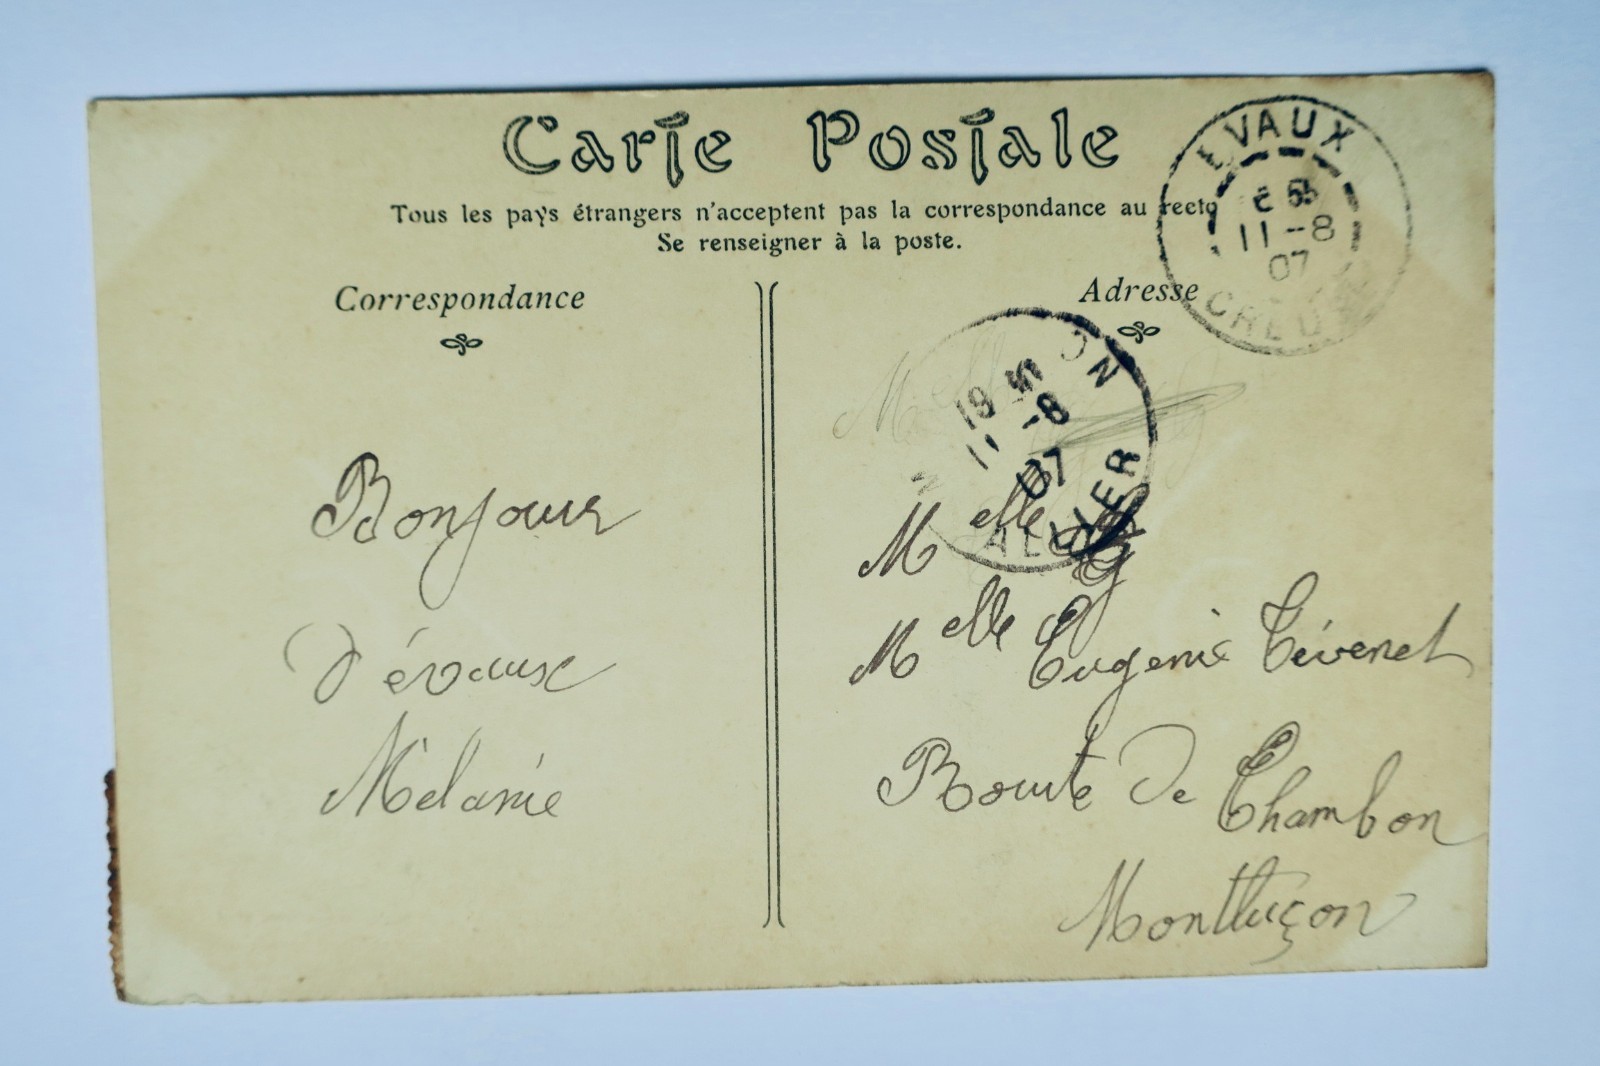 Carte Postale
Tous les pays étrangers n'acceptent pas la correspondance au recto
Se renseigner à la poste.
Correspondance
Adresse
EVAUX
11-8
07
CREUSE
19
11 -8
07
ALLIER
Bonjour
d'évaux
Mélanie
Melle
Melle Eugenie Tévenet
Route de Chambon
Montluçon